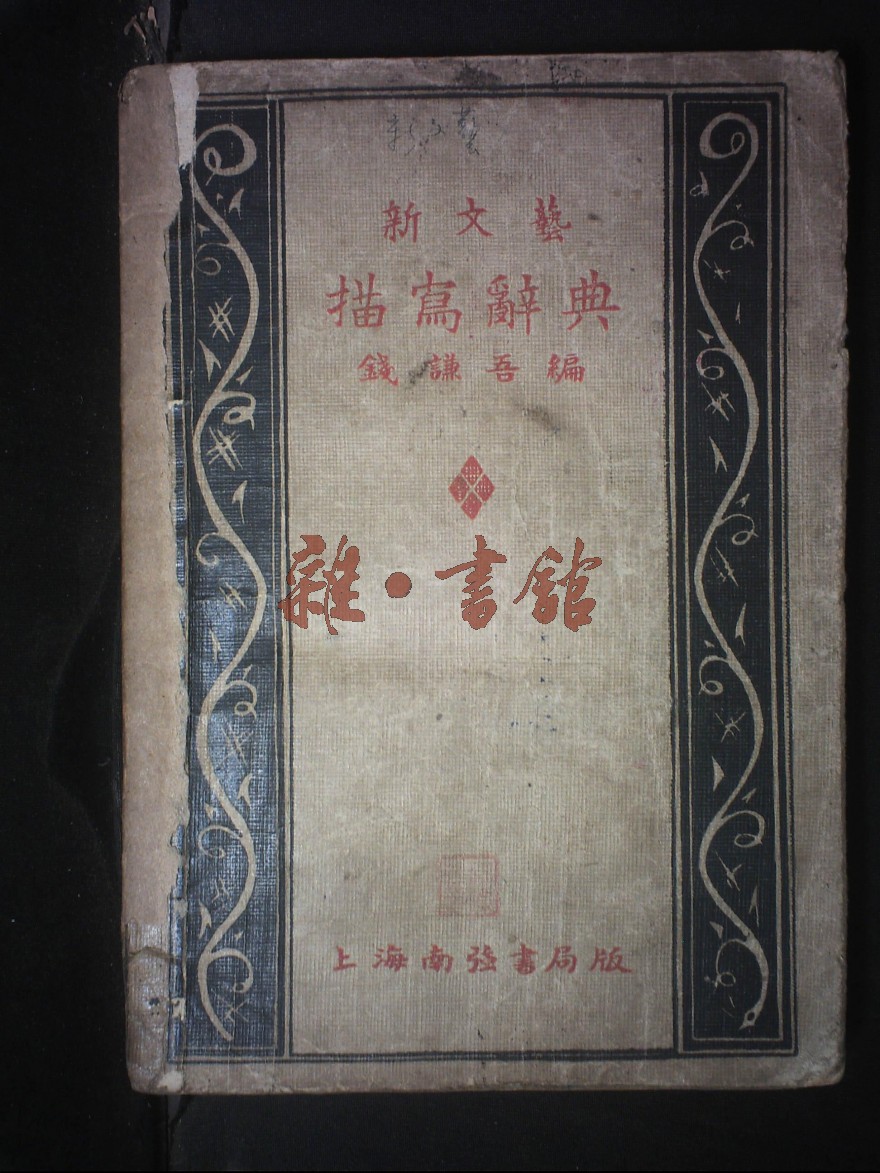 新文藝
新文藝
描寫辭典
錢謙吾編
雜·書館
上海南强書局版